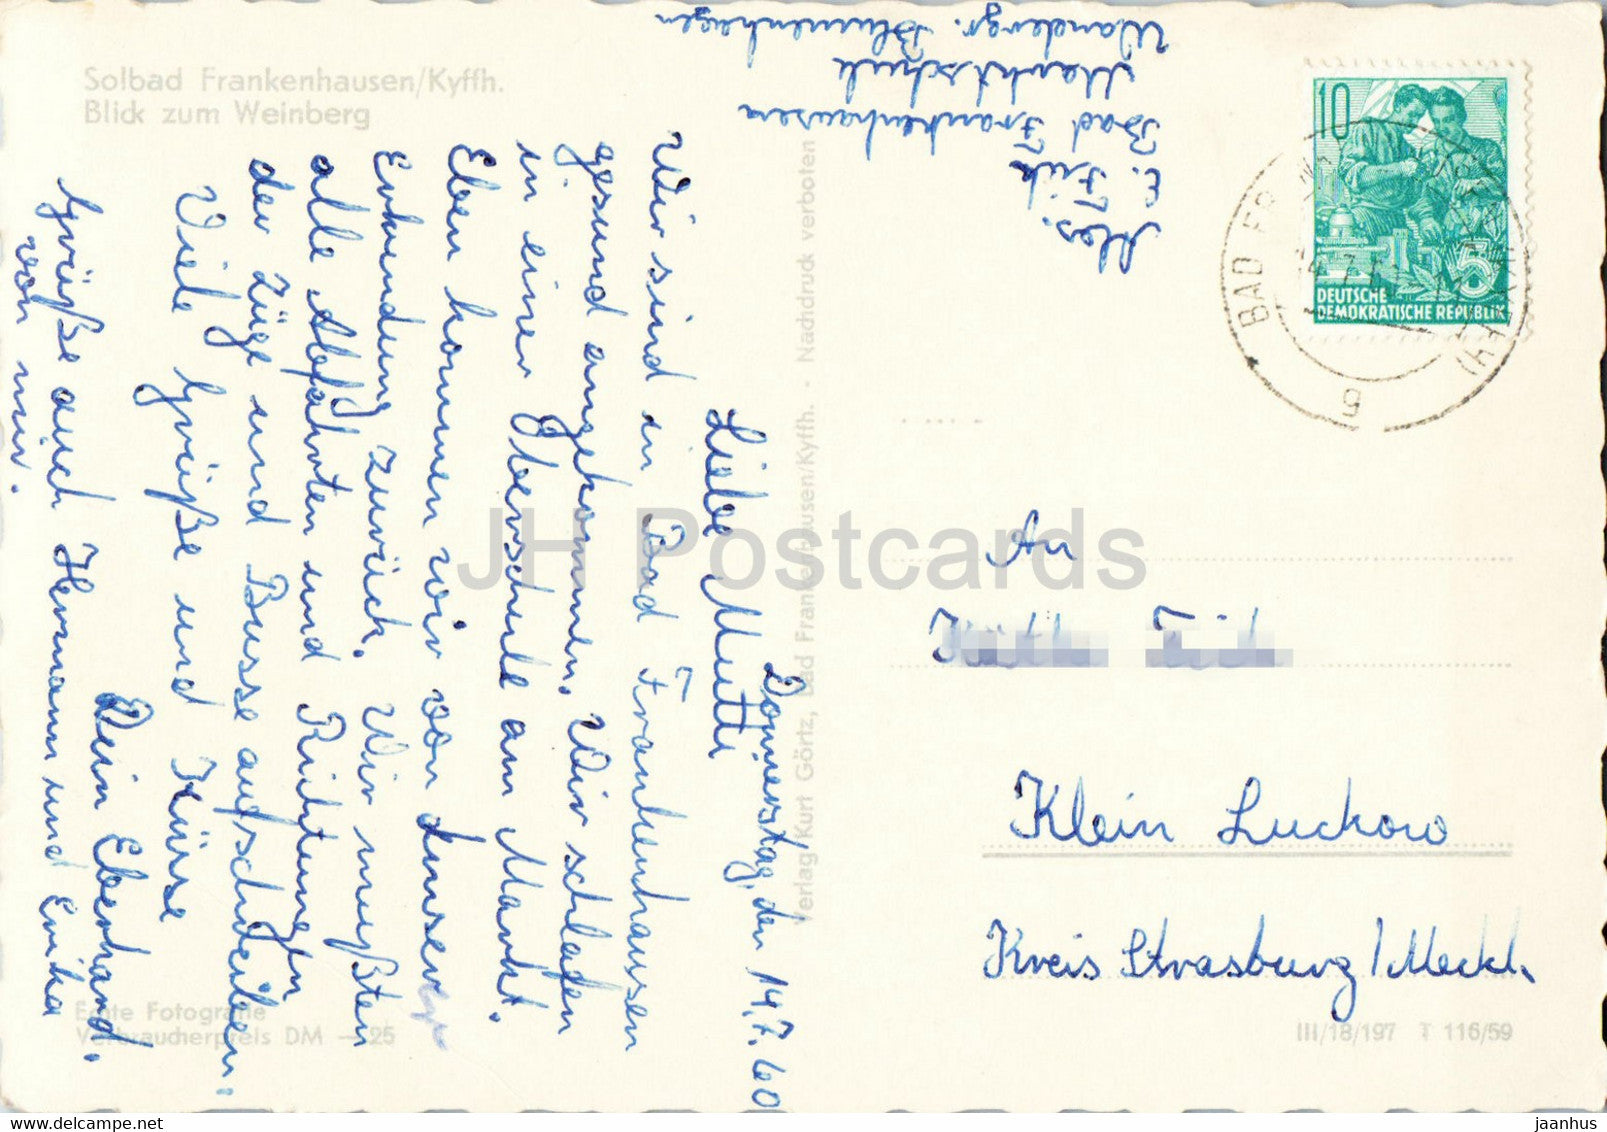 Solbad Frankenhausen/Kyffh.
Blick zum Weinberg
Donnerstag, den 14.7.60
Liebe Mutti
Wir sind in Bad Frankenhausen
gesund angekommen. Wir schlafen
in einer Oberschule am Markt.
Eben kommen wir von unserer
Erkundung zurück. Wir mußten
alle Abfahrten und Richtungen
der Züge und Busse aufschreiben.
Viele Grüße und Küsse
Dein Eberhard.
Grüße auch Hermann und Erika
von mir.
Abs.
E.
Bad Frankenhausen
Marktschule
Wandergr. Blumenhagen
Verlag Kurt Görtz, Bad Frankenhausen/Kyffh. - Nachdruck verboten
10
5
DEUTSCHE
DEMOKRATISCHE REPUBLIK
BAD FRANKENHAUSEN (KYFFH)
An
Klein Luckow
Kreis Strasburg/Meckl.
Echte Fotografie
Verbraucherpreis DM —,25
III/18/197 T 116/59
JH Postcards
www.delcampe.net
jaanhus